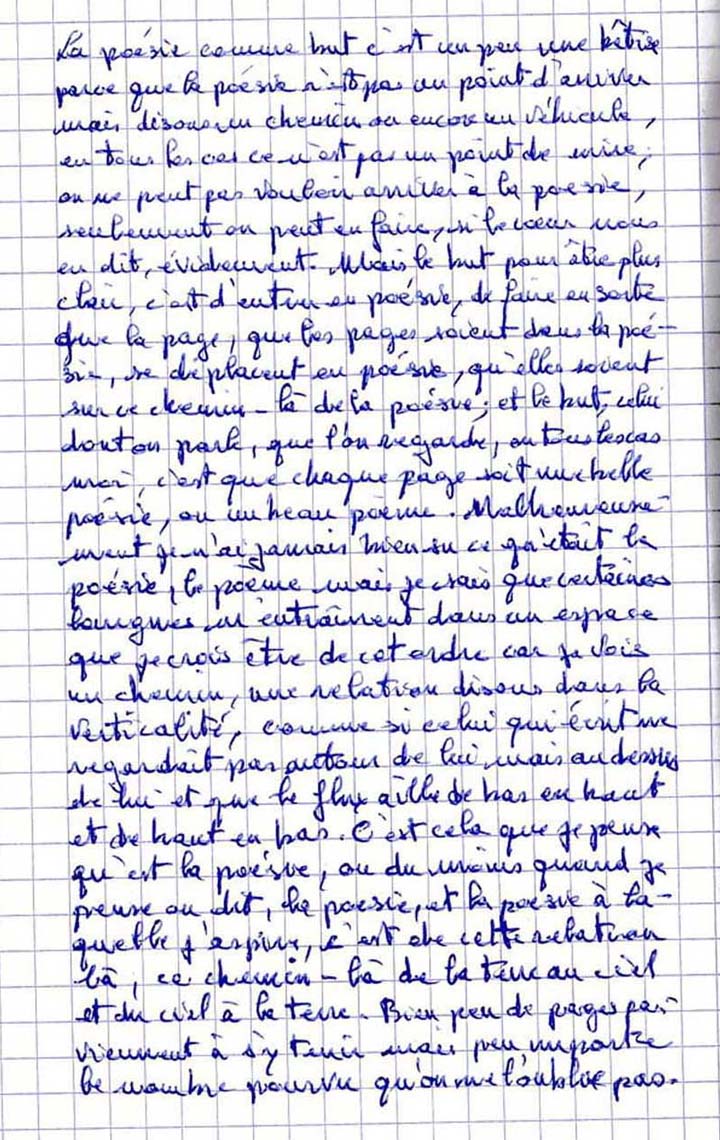 La poésie comme but c'est un peu une bêtise
parce que la poésie n'est pas un point d'arrivée
mais disons un chemin ou encore un véhicule,
en tous les cas ce n'est pas un point de mire,
on ne peut pas vouloir arriver à la poésie,
seulement on peut en faire, si le cœur nous
en dit, évidemment. Mais le but pour être plus
clair, c'est d'entrer en poésie, de faire en sorte
que la page, que les pages soient dans la poé-
sie, se déplacent en poésie, qu'elles soient
sur ce chemin-là de la poésie; et le but, celui
dont on parle, que l'on regarde, en tous les cas
moi, c'est que chaque page soit une belle
poésie, ou un beau poème. Malheureuse-
ment je n'ai jamais bien su ce qu'était la
poésie, le poème mais je sais que certaines
lignes m'entraînent dans un espace
que je crois être de cet ordre car je vois
un chemin, une relation disons dans la
verticalité, comme si celui qui écrit ne
regardait pas autour de lui mais au dessus
de lui et que le flux aille de bas en haut
et de haut en bas. C'est cela que je pense
qu'est la poésie, ou du moins quand je
pense ou dit, la poésie, et la poésie à la-
quelle j'aspire, c'est de cette relation
là, ce chemin-là de la terre au ciel
et du ciel à la terre. Bien peu de pages par-
viennent à s'y tenir mais peu importe
le nombre pourvu qu'on ne l'oublie pas.